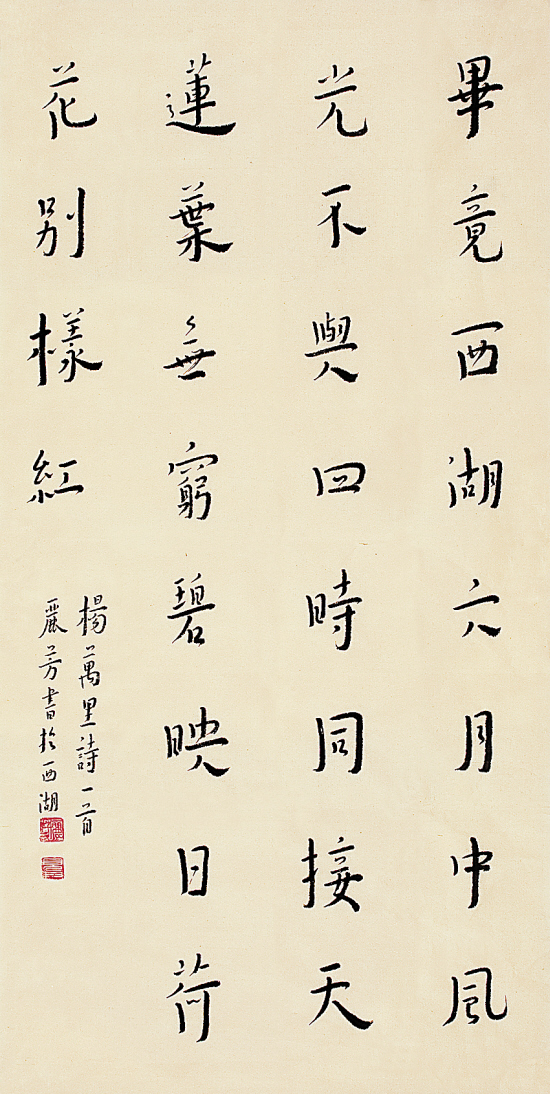 畢竟西湖六月中風
光不與四時同接天
蓮葉無窮碧映日荷
花別樣紅
楊萬里詩一首
麗芳書於西湖